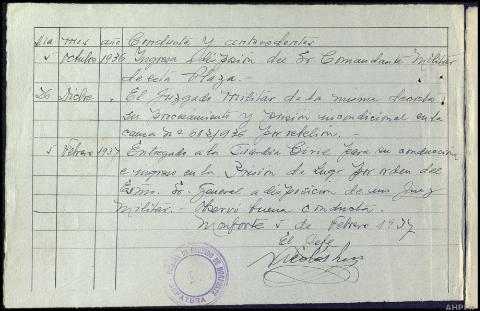 Día mes año Conducta y antecedentes
5 Octubre 1936 Ingresa a disposición del Sr Comandante Militar
de esta Plaza.-
26 Dicbre " El Juzgado Militar de la misma decreta
su procesamiento y prisión incondicional en la
causa nº 603/1936 por rebelion.-
5 Febrero 1937 Entregado a la Guardia Civil para su conducción
e ingreso en la Prisión de Lugo por orden del
Exmo. Sr. General a disposicion de un Juez
Militar.- Observó buena conducta.
Monforte 5 de Febrero 1937
El Jefe
PRISION DE PARTIDO DE MONFORTE
JEFATURA